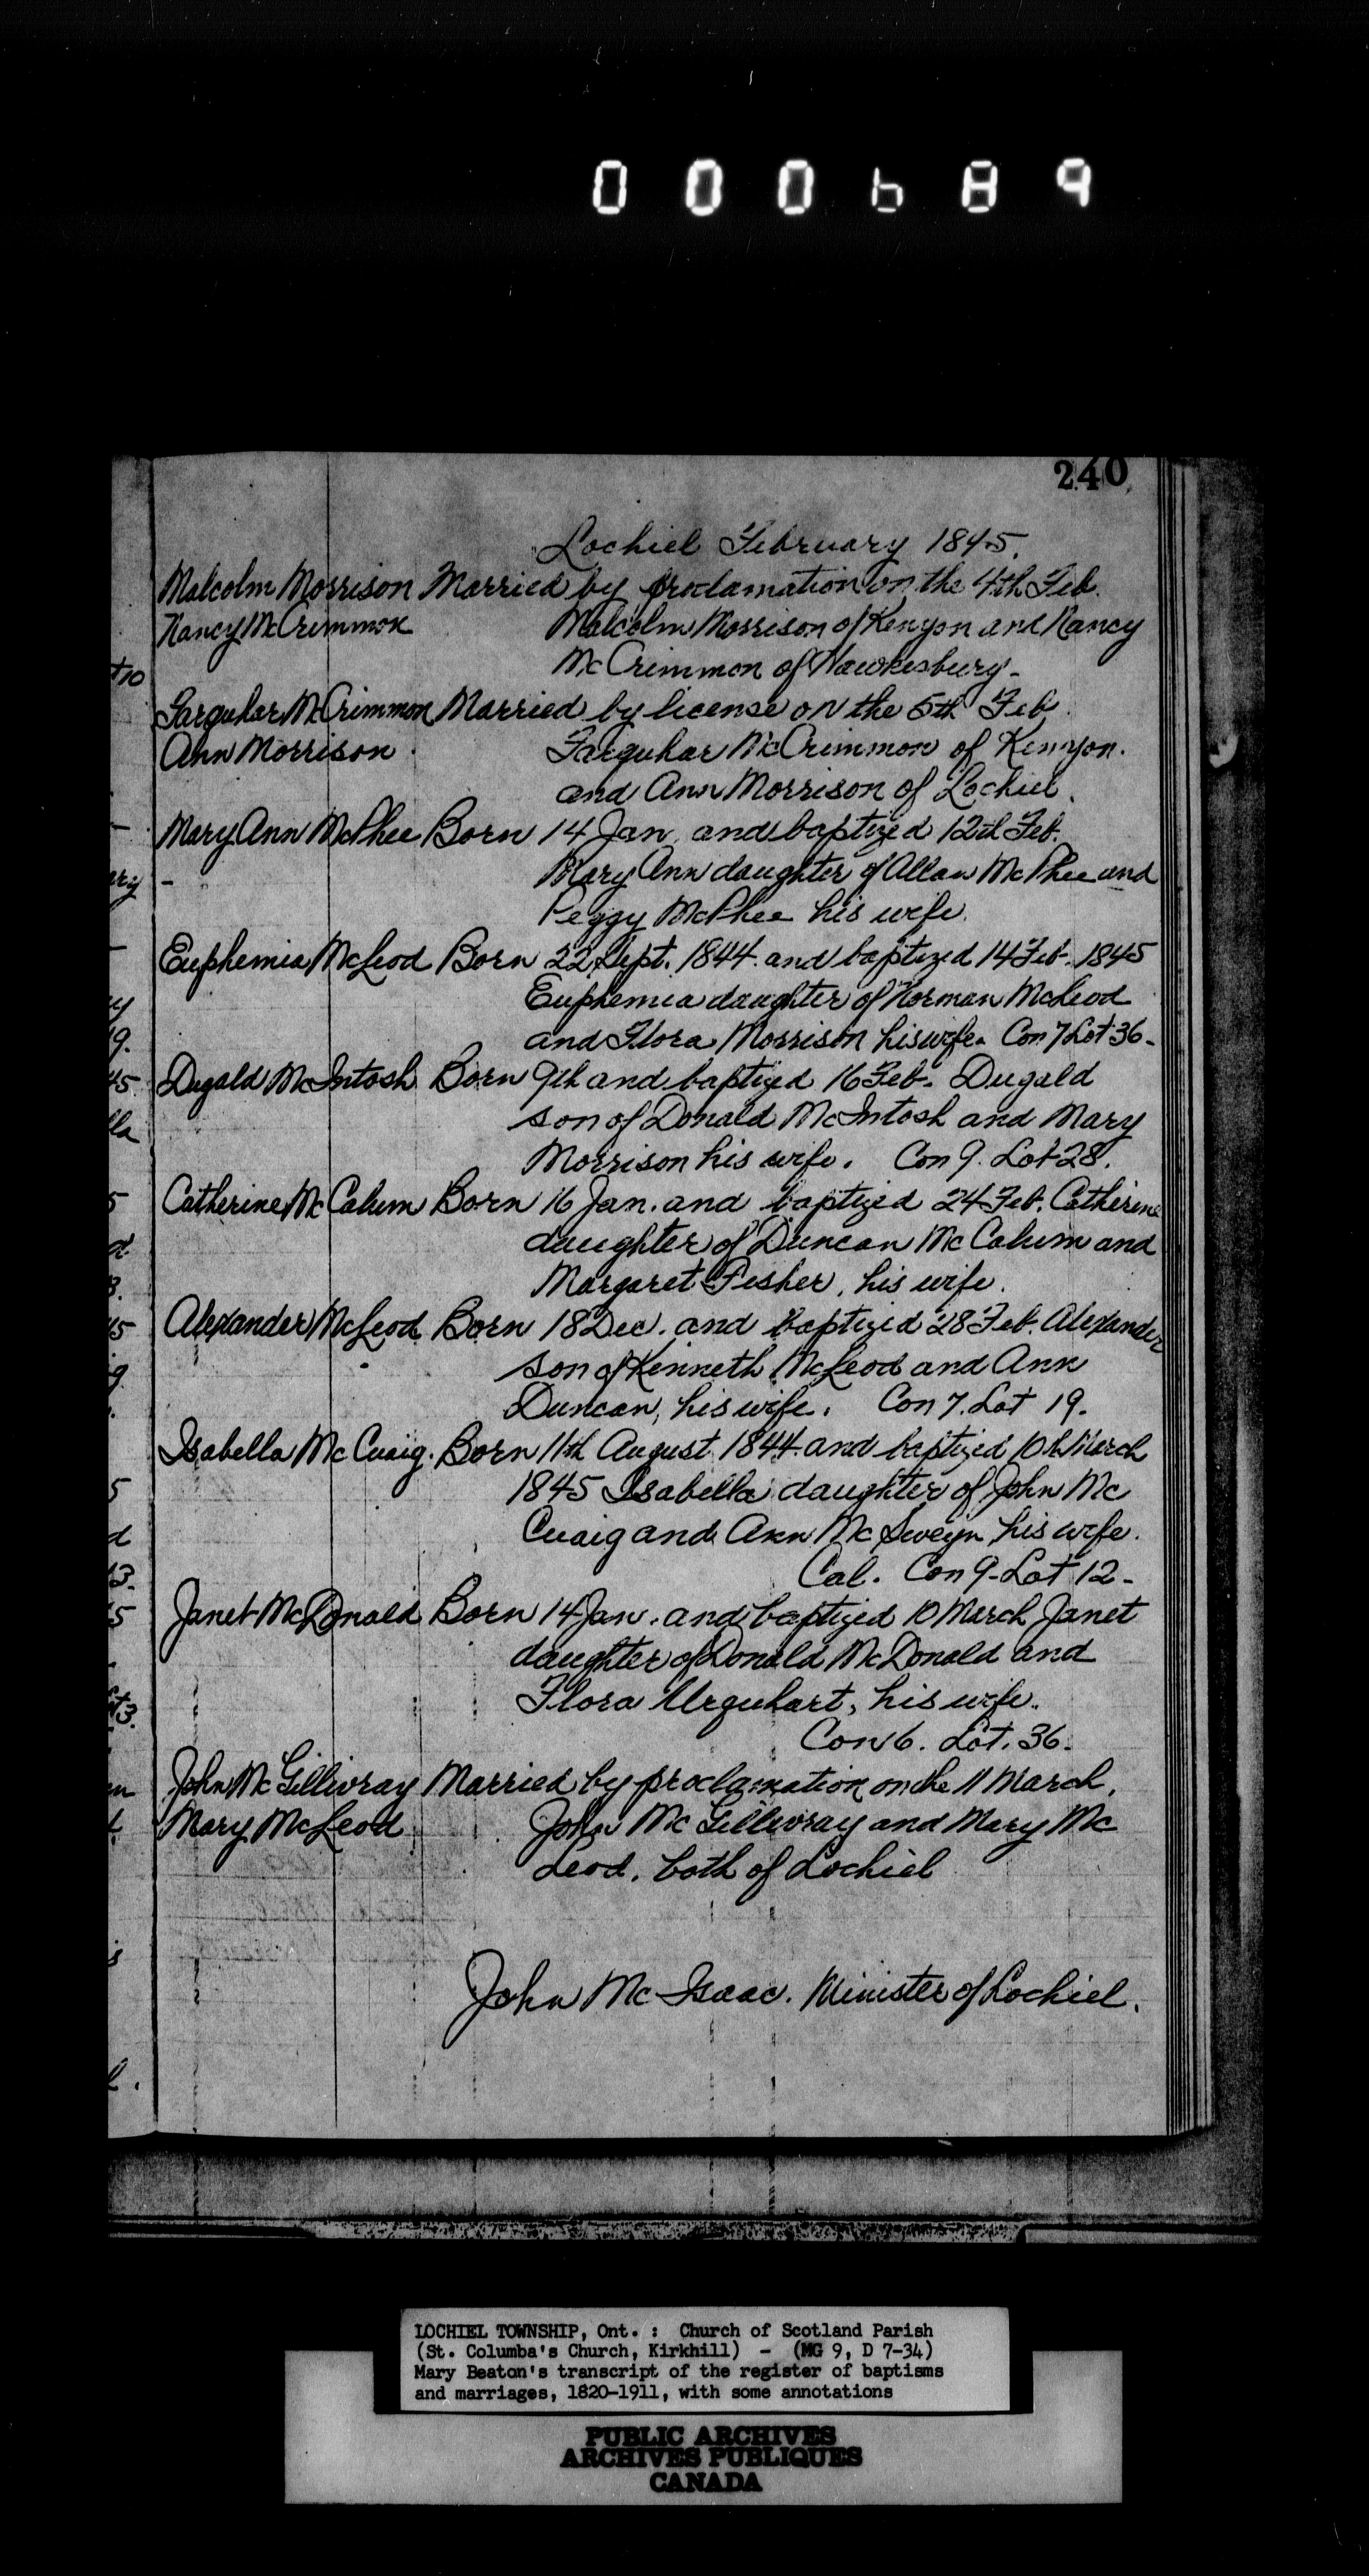 000689
240
Lochiel February 1845.
Malcolm Morrison Married by proclamation on the 4th Feb.
Nancy McCrimmon Malcolm Morrison of Kenyon and Nancy
McCrimmon of Hawkesbury-
Farquhar McCrimmon Married by license on the 5th Feb.
Ann Morrison Farquhar McCrimmon of Kenyon.
and Ann Morrison of Lochiel.
Mary Ann McPhee Born 14 Jan. and baptized 12th Feb.
Mary Ann daughter of Allan McPhee and
Peggy McPhee his wife.
Euphemia McLeod Born 22 Sept. 1844. and baptized 14 Feb. 1845
Euphemia daughter of Norman McLeod
and Flora Morrison his wife. Con 7 Lot 36-
Dugald McIntosh Born 9th and baptized 16 Feb. Dugald
son of Donald McIntosh and Mary
Morrison his wife. Con 9. Lot 28.
Catherine McCalum Born 16 Jan. and baptized 24 Feb. Catherine
daughter of Duncan McCalum and
Margaret Fisher, his wife.
Alexander McLeod Born 18 Dec. and baptized 28 Feb. Alexander
son of Kenneth McLeod and Ann
Duncan, his wife. Con 7. Lot 19.
Isabella McCuaig. Born 11th August 1844. and baptized 10th March
1845 Isabella daughter of John Mc
Cuaig and Ann McSweyn, his wife.
Cal. Con 9-Lot 12-
Janet McDonald Born 14 Jan. and baptized 10 March Janet
daughter of Donald McDonald and
Flora Urquhart, his wife.
Con 6. Lot. 36.
John McGillivray Married by proclamation on the 11 March.
Mary McLeod John McGillivray and Mary Mc
Leod, both of Lochiel
John McIsaac. Minister of Lochiel.
LOCHIEL TOWNSHIP, Ont. : Church of Scotland Parish
(St. Columba's Church, Kirkhill) - (MG 9, D 7-34)
Mary Beaton's transcript of the register of baptisms
and marriages, 1820-1911, with some annotations
PUBLIC ARCHIVES
ARCHIVES PUBLIQUES
CANADA